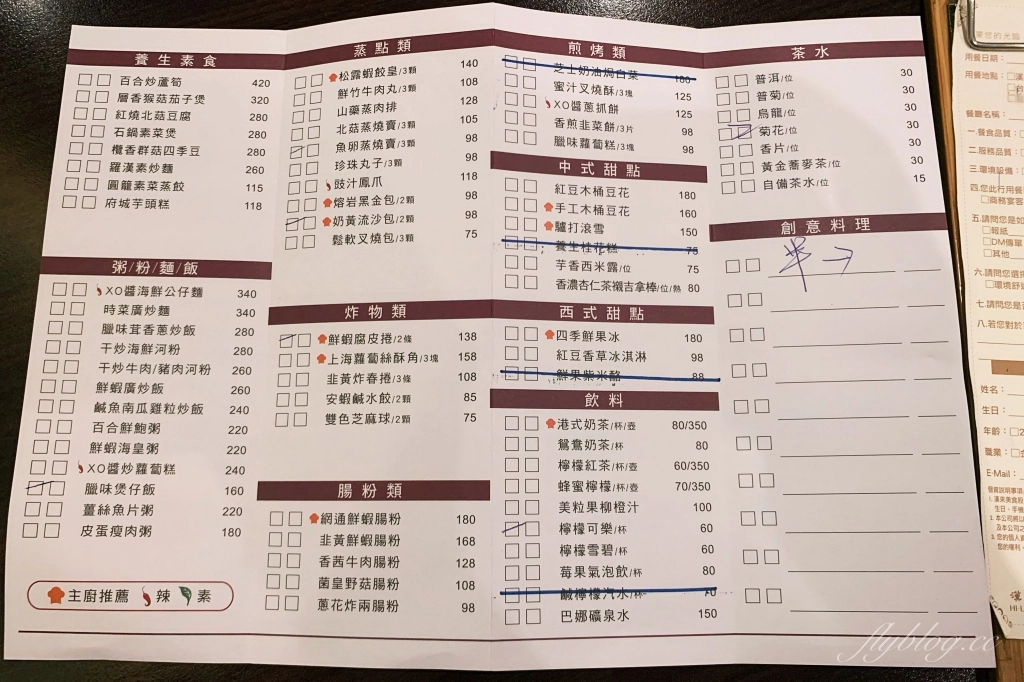 養生素食
百合炒蘆筍 420
層香猴菇茄子煲 320
紅燒北菇豆腐 280
石鍋素菜煲 280
欖香群菇四季豆 280
羅漢素炒麵 260
圓籠素菜蒸餃 115
府城芋頭糕 118
粥/粉/麵/飯
XO醬海鮮公仔麵 340
時菜廣炒麵 340
臘味茸香蔥炒飯 280
干炒海鮮河粉 280
干炒牛肉/豬肉河粉 260
鮮蝦廣炒飯 260
鹹魚南瓜雞粒炒飯 240
百合鮮鮑粥 220
鮮蝦海皇粥 220
XO醬炒蘿蔔糕 240
臘味煲仔飯 160
薑絲魚片粥 220
皮蛋瘦肉粥 180
主廚推薦 辣 素
蒸點類
松露蝦餃皇/3顆 140
鮮竹牛肉丸/3顆 108
山藥蒸肉排 128
北菇蒸燒賣/3顆 105
魚卵蒸燒賣/3顆 98
珍珠丸子/3顆 98
豉汁鳳爪 118
熔岩黑金包/2顆 98
奶黃流沙包/2顆 98
鬆軟叉燒包/3顆 75
炸物類
鮮蝦腐皮捲/2條 138
上海蘿蔔絲酥角/3塊 158
韭黃炸春捲/3條 108
安蝦鹹水餃/2顆 85
雙色芝麻球/2顆 75
腸粉類
網通鮮蝦腸粉 180
韭黃鮮蝦腸粉 168
香茜牛肉腸粉 128
菌皇野菇腸粉 108
蔥花炸兩腸粉 98
煎烤類
芝士奶油焗白菜 160
蜜汁叉燒酥/3塊 125
XO醬蔥抓餅 125
香煎韭菜餅/3片 98
臘味蘿蔔糕/3塊 98
中式甜點
紅豆木桶豆花 180
手工木桶豆花 160
驢打滾雪 150
養生桂花糕 75
芋香西米露/位 75
香濃杏仁茶襯吉拿棒/位/熱 80
西式甜點
四季鮮果冰 180
紅豆香草冰淇淋 98
鮮果紫米酪 88
飲料
港式奶茶/杯/壺 80/350
鴛鴦奶茶/杯 80
檸檬紅茶/杯/壺 60/350
蜂蜜檸檬/杯/壺 70/350
美粒果柳橙汁 100
檸檬可樂/杯 60
檸檬雪碧/杯 60
莓果氣泡飲/杯 80
鹹檸檬汽水/杯 70
巴娜礦泉水 150
茶水
普洱/位 30
普菊/位 30
烏龍/位 30
菊花/位 30
香片/位 30
黃金蕎麥茶/位 30
自備茶水/位 15
創意料理
用餐日期：
用餐地點：
餐廳名稱：
一.餐食品質：
二.服務品質：
三.環境設備：
四.您此行用餐
商務宴客
五.請問您是如
報紙
DM傳單
其他
六.請問您選擇
環境舒適
七.請問您是
八.若您對於
姓名：
生日：
年齡：
職業：
E-Mail：
flyblog.cc